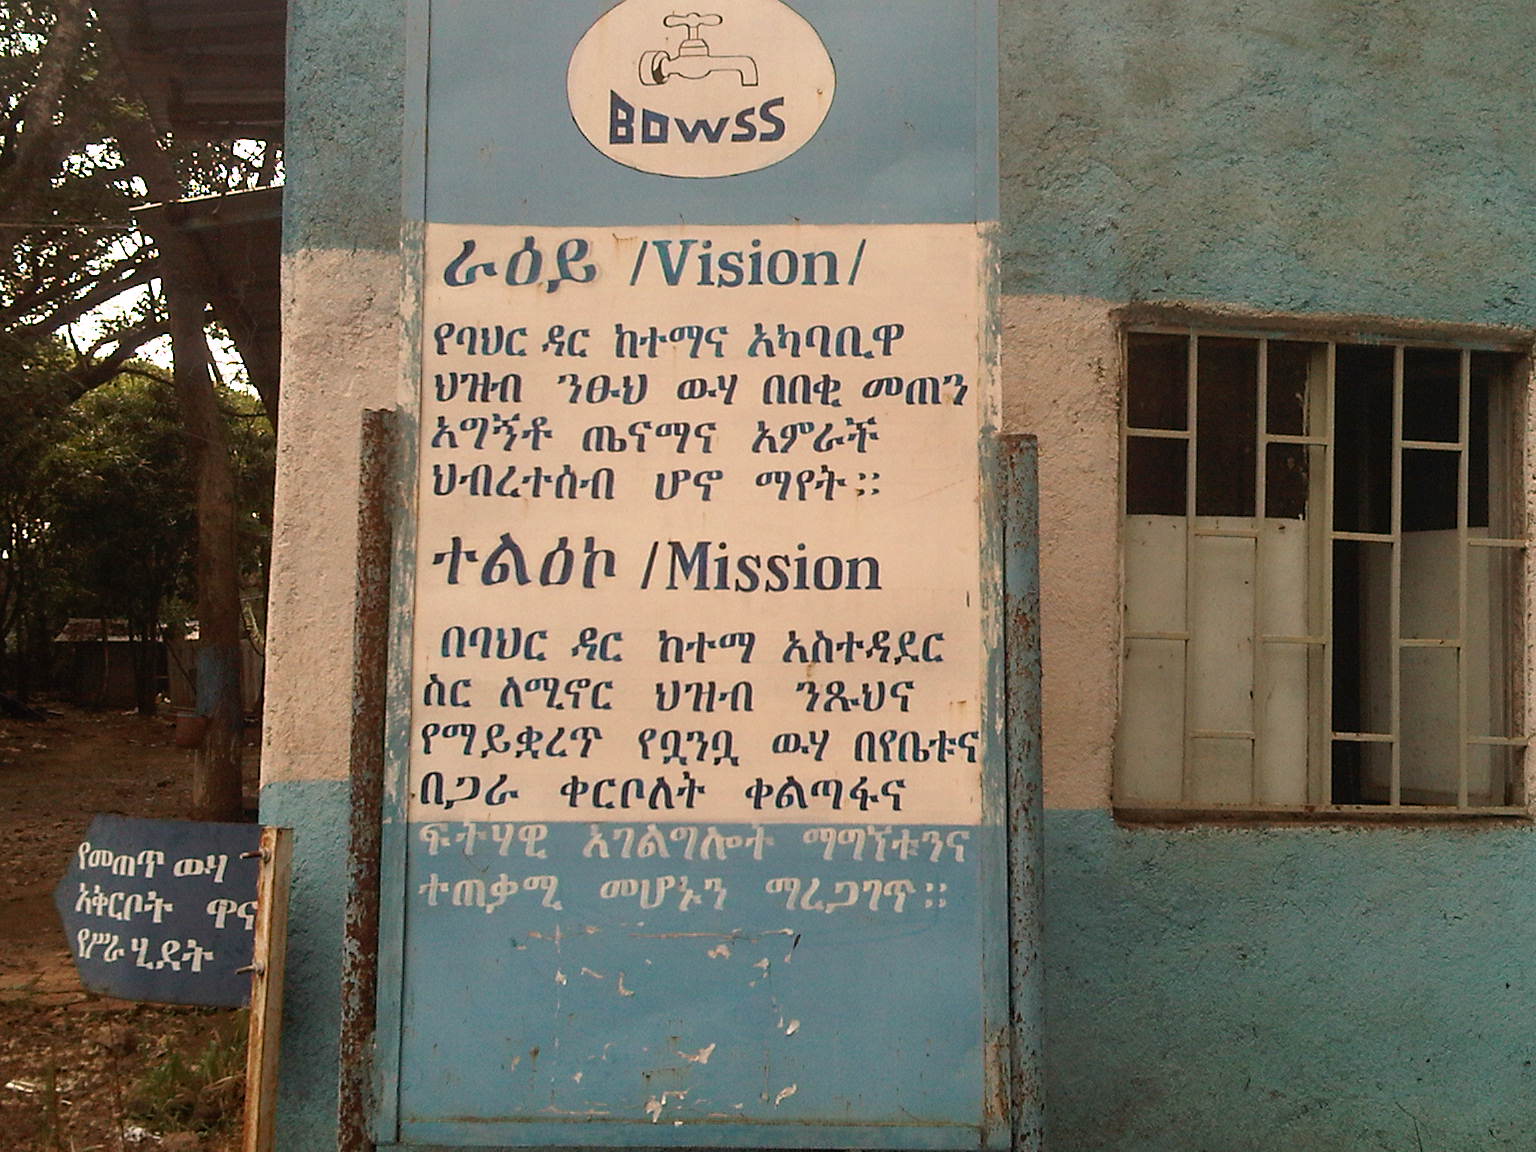 BOWSS
ራዕይ /Vision/
የባህር ዳር ከተማና አካባቢዋ
ህዝብ ንፁህ ውሃ በበቂ መጠን
አግኝቶ ጤናማና አምራች
ህብረተሰብ ሆኖ ማየት፡፡
ተልዕኮ /Mission
በባህር ዳር ከተማ አስተዳደር
ስር ለሚኖር ህዝብ ንጹህና
የማይቋረጥ የቧንቧ ውሃ በየቤቱና
በጋራ ቀርቦለት ቀልጣፋና
ፍትሃዊ አገልግሎት ማግኘቱንና
ተጠቃሚ መሆኑን ማረጋገጥ፡፡
የመጠጥ ውሃ
አቅርቦት ዋና
የሥራ ሂደት